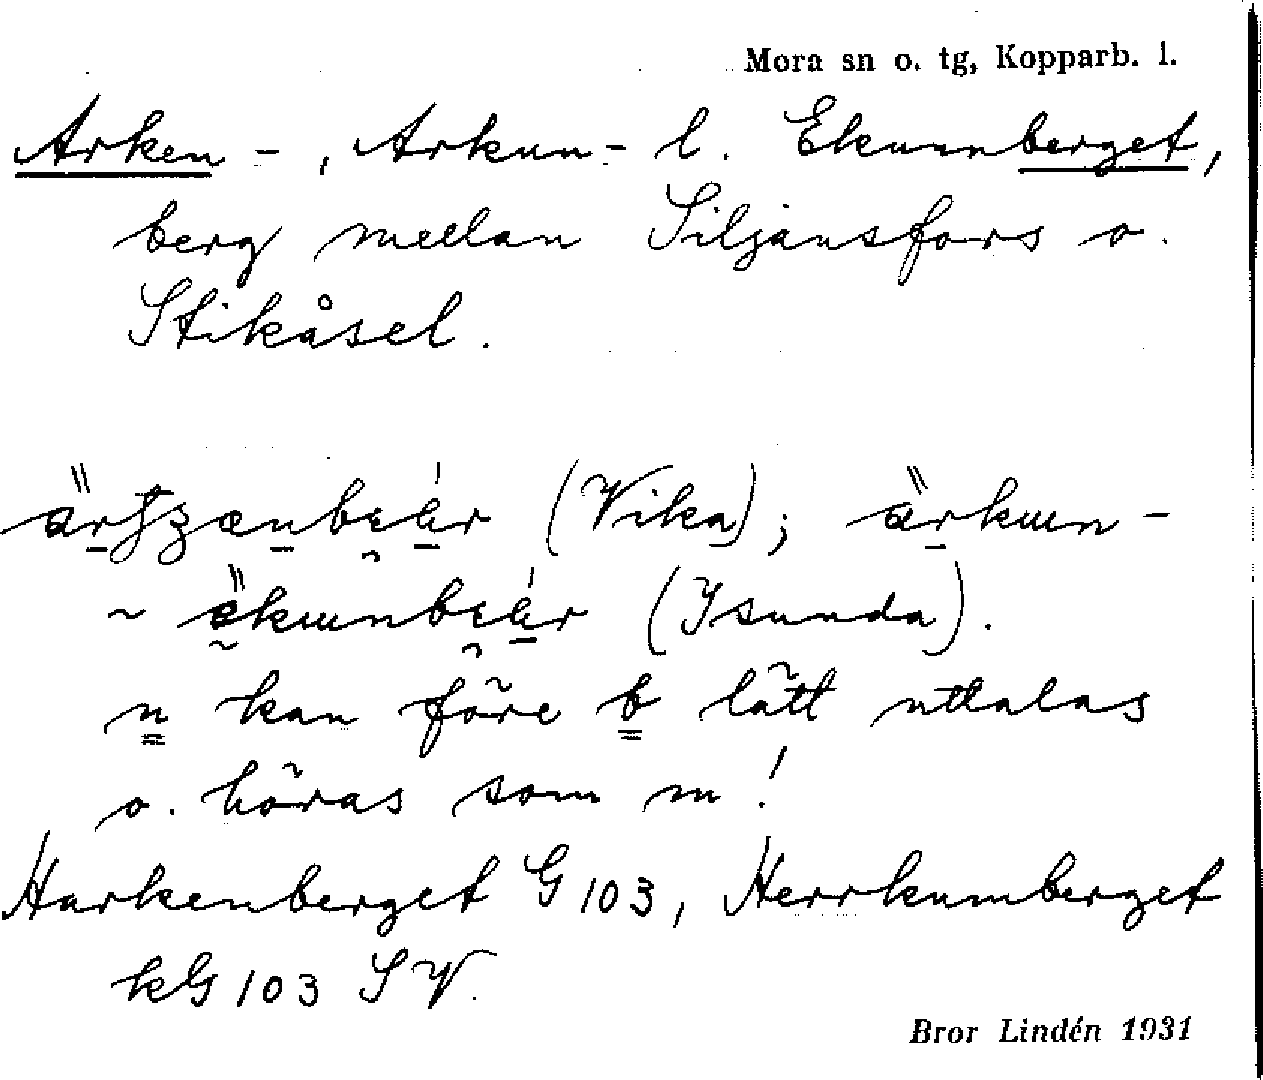 Mora sn o. tg, Kopparb. l.
Arken-, Arkun- l. Ekunnberget,
berg mellan Siljansfors o.
Stikåsel.
(Vika);
(Isunda).
n kan före b lätt uttalas
o. höras som m!
Harkenberget G 103, Herrkumberget
kG 103 SV.
Bror Lindén 1931